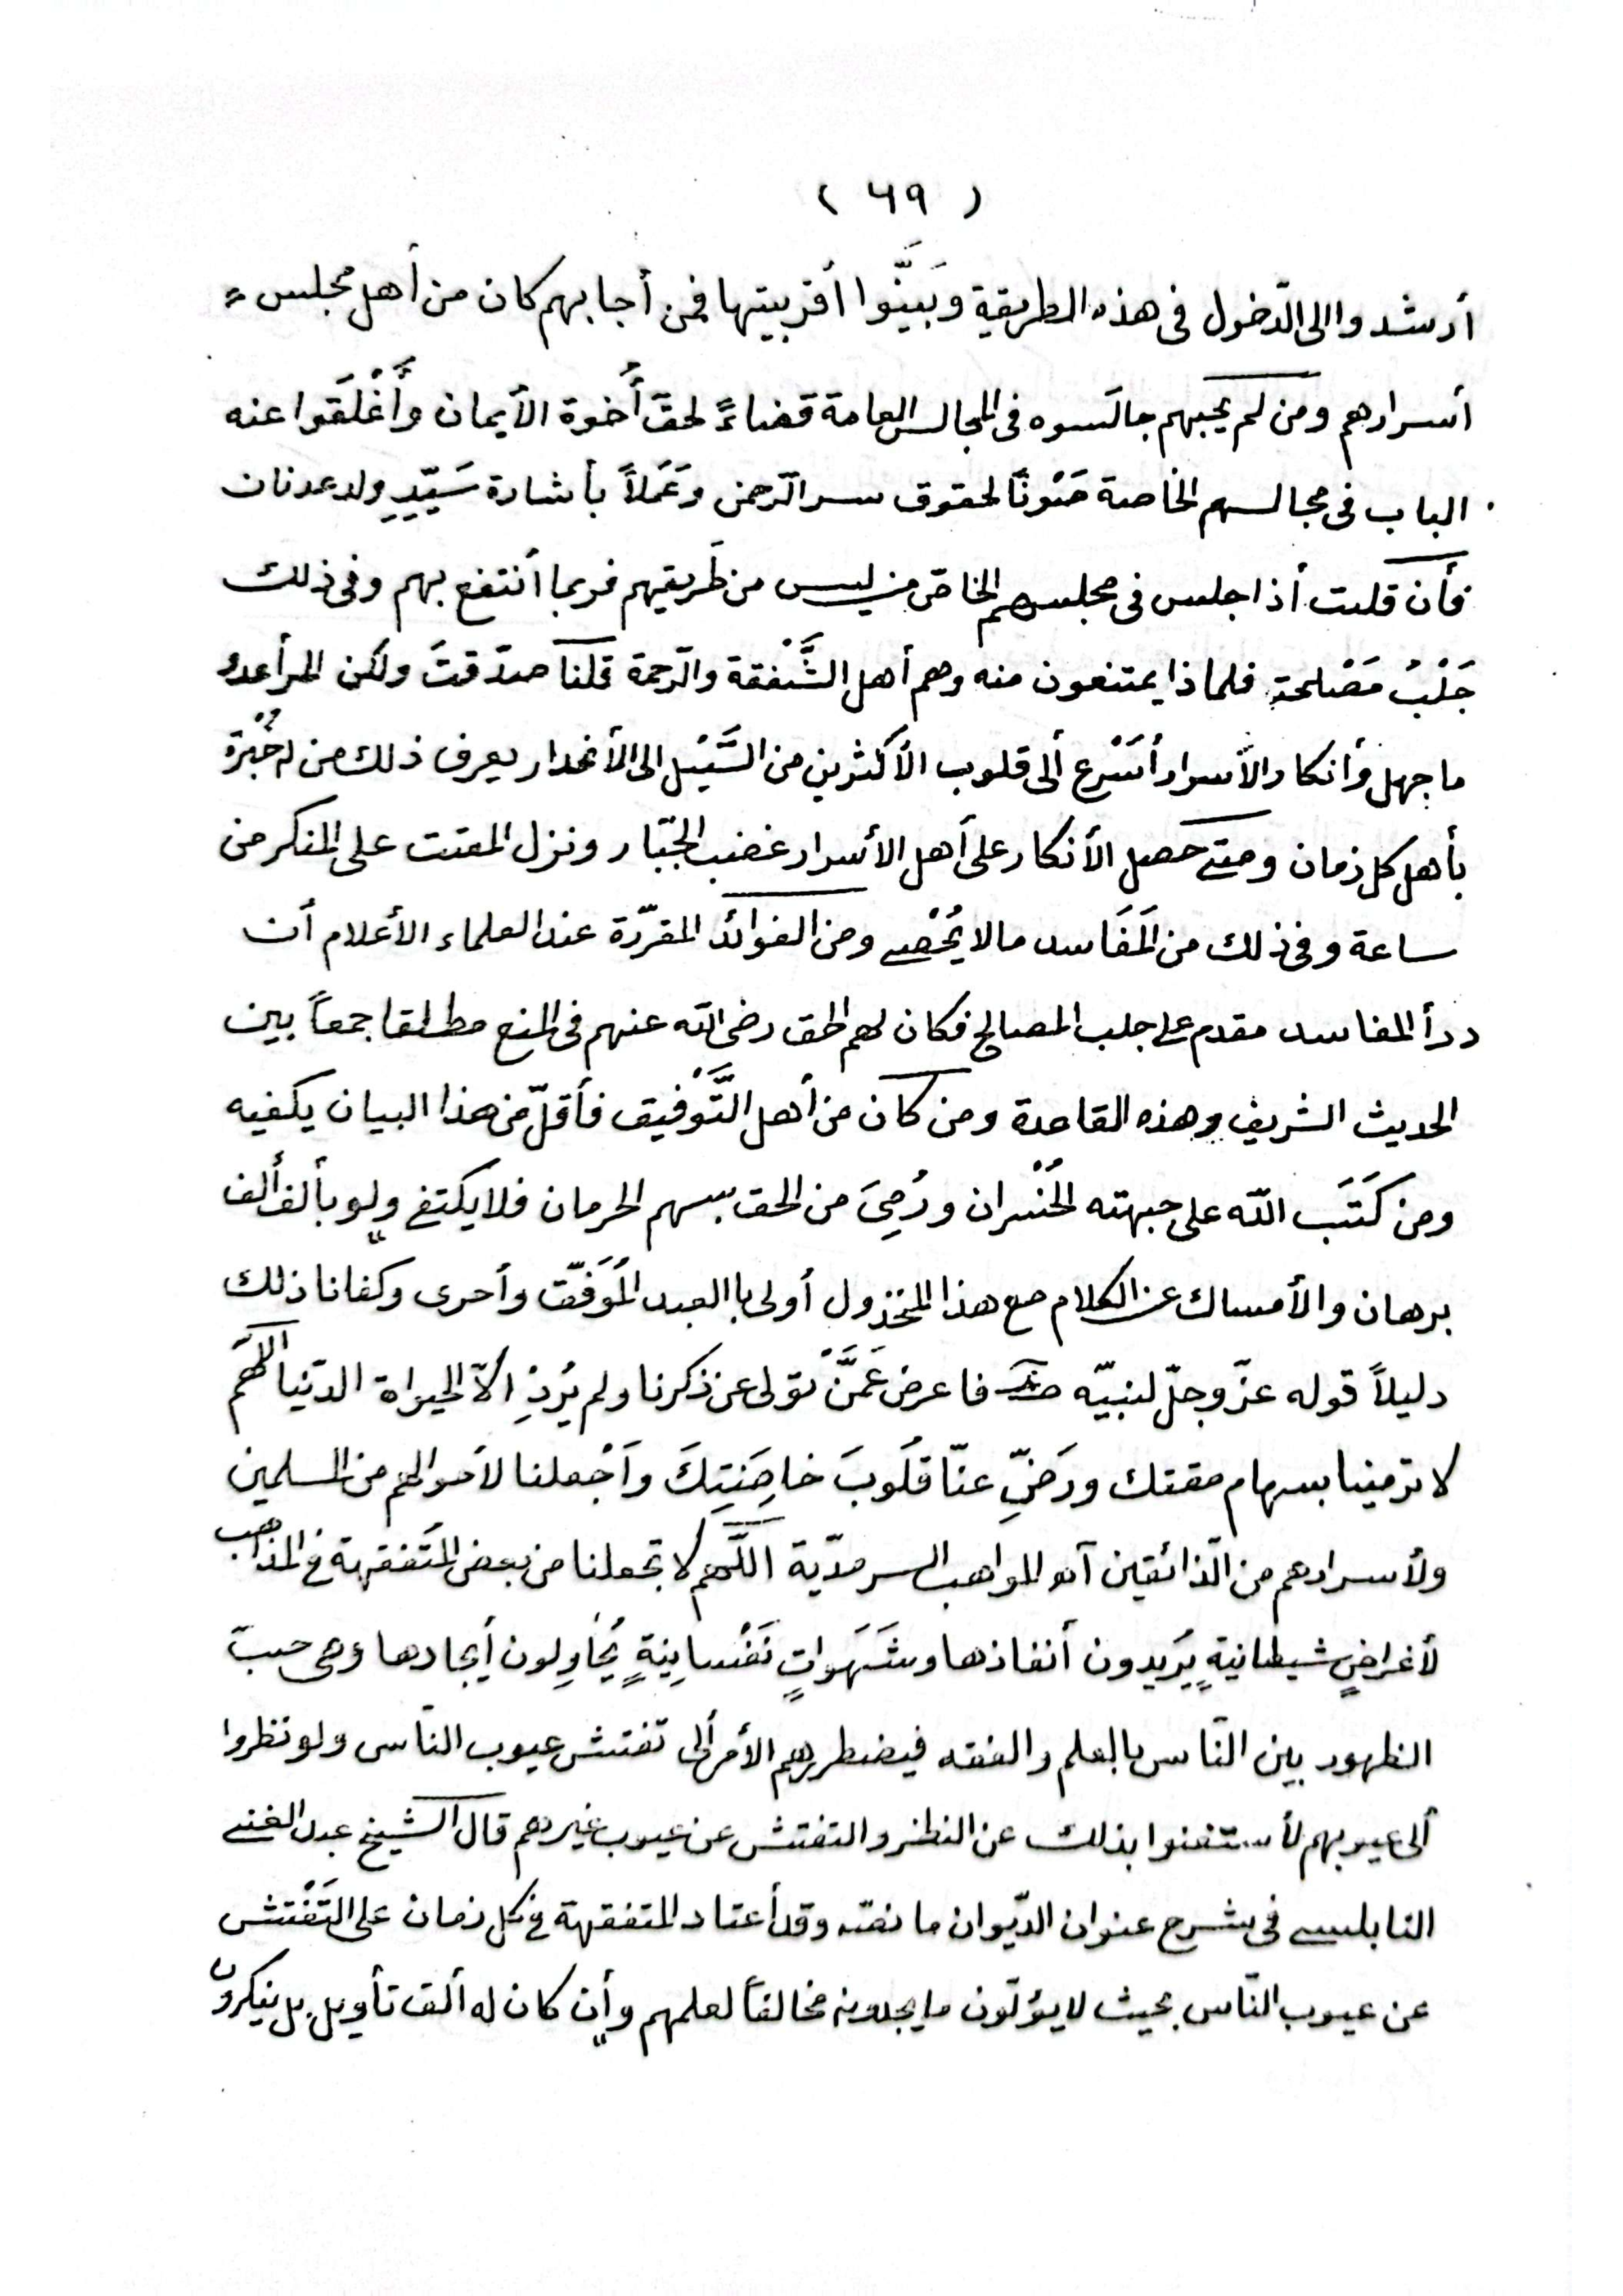 ( ٦٩ )
أرشدوا الى الدّخول فى هذه الطريقة وبَيَّنُوا أقربيتها فمن أجابهم كان من أهل مجلس =
أسرارهم ومن لم يجبهم جالَسوه فى المجالس العامة قضاءً لحقّ أُخوة الأيمان وأَغْلَقوا عنه
الباب فى مجالسهم الخاصة صَوْنًا لحقوق سر الرّحمن وعَمَلاً بأشارة سَيّدِ ولد عدنان
فأن قلت أذا جلس فى مجلسهم الخاصّ من ليس من طَريقهم فربما أنتفع بهم وفى ذلك
جَلْبُ مَصْلحةٍ فلماذا يمتنعون منه وهم أهل الشَّفْقة والرّحمة قلنا صدّقتَ ولكن المرأ عدو
ما جهل وأنكار الأسرار أسْرع ألى قلوب الأكثرين من السَّيْل الى الأنحدار يعرف ذلك من له خُبْرة
بأهل كل زمان ومتى حصل الأنكار على أهل الأسرار غضب الجبّار ونزل المقت على المنكر من
ساعة وفى ذلك من المَفَاسد مالا يُحْصى ومن الفوائد المقرّرة عند العلماء الأعلام أن
درأ المفاسد مقدم على جلب المصالح فكان لهم الحق رضى الله عنهم فى المنع مطلقا جمعاً بين
الحديث الشريف وهذه القاعدة ومن كان من أهل التَّوْفيق فأقلّ من هذا البيان يكفيه
ومن كَتَبَ اللّه على جبهته الخُسْران ورُمِىَ من الحق بسهم الحرمان فلا يكتفى ولو بألف ألف
برهان والأمساك عن الكلام مع هذا المخذول أولى باالعبد المُوَفّق وأحرى وكفانا ذلك
دليلاً قوله عزّ وجلّ لنبيّه فاعرض عَمَّنْ تولى عن ذكرنا ولم يُرِدْ الاّ الحيواة الدّنيا اللّهمّ
لا ترمينا بسهام مقتك ورَضِّ عنّا قلُوبَ خاصَّتِكَ وأجْعلنا لأحوالهم من المسلمين
ولأسرارهم من الذّائقين المواهب السرمدّية اللّهم لا تجعلنا من بعض المتَفقهة فى المذاهب
لأغراضٍ شيطانيةٍ يُريدون أنفاذها وشَهَواتٍ نَفْسانِيةٍ يُحاوِلون أيجادها وهى حبّ
الظهور بين النّاس بالعلم والفقه فيضطررهم الأمر ألى تّفتش عيوب النّاس ولو نظروا
ألى عيوبهم لأستغنوا بذلك عن النظر والتفتش عن عيوب غيرهم قال الشيخ عبد الغنى
النابلسى فى شرح عنوان الديّوان ما نصّه وقد أعتاد المتفقهة فى كل زمان على التَفْتش
عن عيوب النّاس بحيث لا يؤلّون ما يجدونه مخالفاً لعلمهم وأن كان له ألف تأويل بل ينكرون